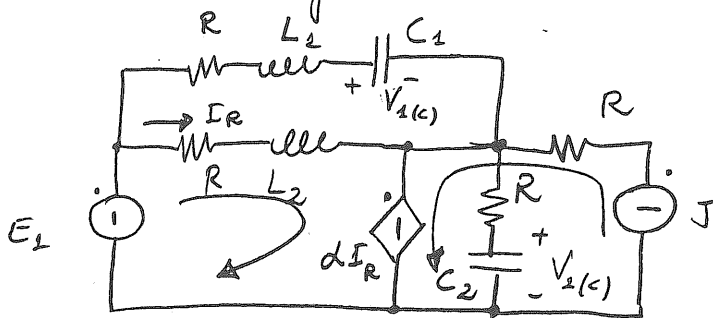 R L₁ C₁
+ - V₁(c)
I_R R
R L₂
E₁ αI_R R + J
C₂ - V₂(c)